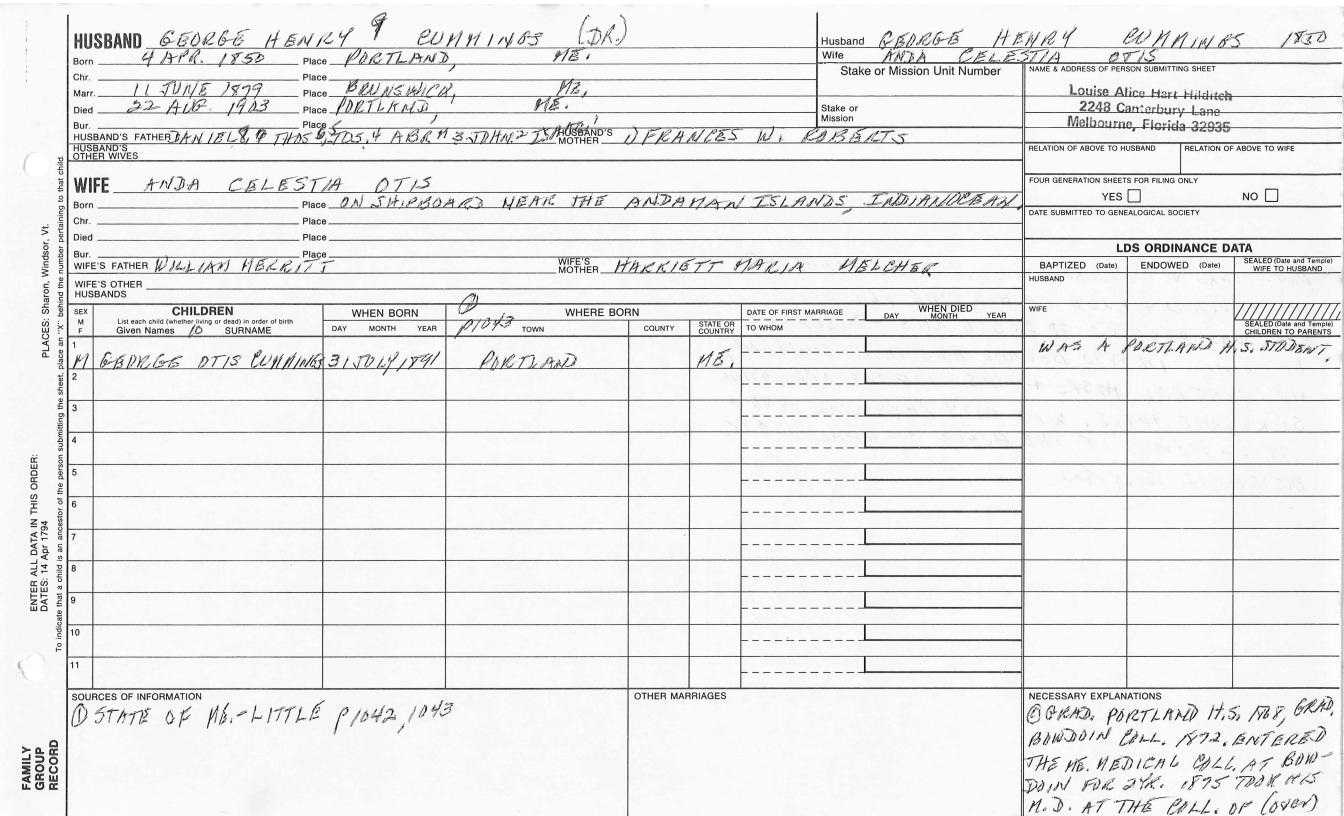 HUSBAND GEORGE HENRY 9 CUMMINGS (DR.)
Born 4 APR. 1850 Place PORTLAND, ME.
Chr. Place
Marr. 11 JUNE 1879 Place BRUNSWICK, ME,
Died 22 AUG. 1903 Place PORTLAND, ME.
Bur. Place
HUSBAND'S FATHER DANIEL 8, 7 THOS 6, 5 JOS. 4 ABRM 3 JOHN 2 ISAAC 1 HUSBAND'S MOTHER 1) FRANCES W. ROBERTS
HUSBAND'S OTHER WIVES
WIFE ANDA CELESTIA OTIS
Born Place ON SHIPBOARD NEAR THE ANDAMAN ISLANDS, INDIAN OCEAN,
Chr. Place
Died Place
Bur. Place
WIFE'S FATHER WILLIAM MERRITT WIFE'S MOTHER HARRIETT MARIA MELCHER
WIFE'S OTHER HUSBANDS
Husband GEORGE HENRY CUMMINGS 1850
Wife ANDA CELESTIA OTIS
Stake or Mission Unit Number
Stake or Mission
NAME & ADDRESS OF PERSON SUBMITTING SHEET
Louise Alice Hart Hilditch
2248 Canterbury Lane
Melbourne, Florida 32935
RELATION OF ABOVE TO HUSBAND RELATION OF ABOVE TO WIFE
FOUR GENERATION SHEETS FOR FILING ONLY
YES NO
DATE SUBMITTED TO GENEALOGICAL SOCIETY
LDS ORDINANCE DATA
BAPTIZED (Date) ENDOWED (Date) SEALED (Date and Temple) WIFE TO HUSBAND
HUSBAND
WIFE
SEALED (Date and Temple) CHILDREN TO PARENTS
SEX M F
CHILDREN
List each child (whether living or dead) in order of birth
Given Names 10 SURNAME
WHEN BORN
DAY MONTH YEAR
① P1043
WHERE BORN
TOWN COUNTY STATE OR COUNTRY
DATE OF FIRST MARRIAGE
TO WHOM
WHEN DIED
DAY MONTH YEAR
1 M GEORGE OTIS CUMMINGS 31 JULY 1891 PORTLAND ME. WAS A PORTLAND H.S. STUDENT.
2
3
4
5
6
7
8
9
10
11
SOURCES OF INFORMATION
① STATE OF ME.-LITTLE P1042, 1043
OTHER MARRIAGES
NECESSARY EXPLANATIONS
GRAD. PORTLAND H.S. 1868, GRAD.
BOWDOIN COLL. 1872. ENTERED
THE ME. MEDICAL COLL. AT BOW-
DOIN FOR 2 YR. 1875 TOOK HIS
M.D. AT THE COLL. OF (over)
PLACES: Sharon, Windsor, Vt.
ENTER ALL DATA IN THIS ORDER:
DATES: 14 Apr 1794
To indicate that a child is an ancestor of the person submitting the sheet, place an "X" behind the number pertaining to that child.
FAMILY GROUP RECORD